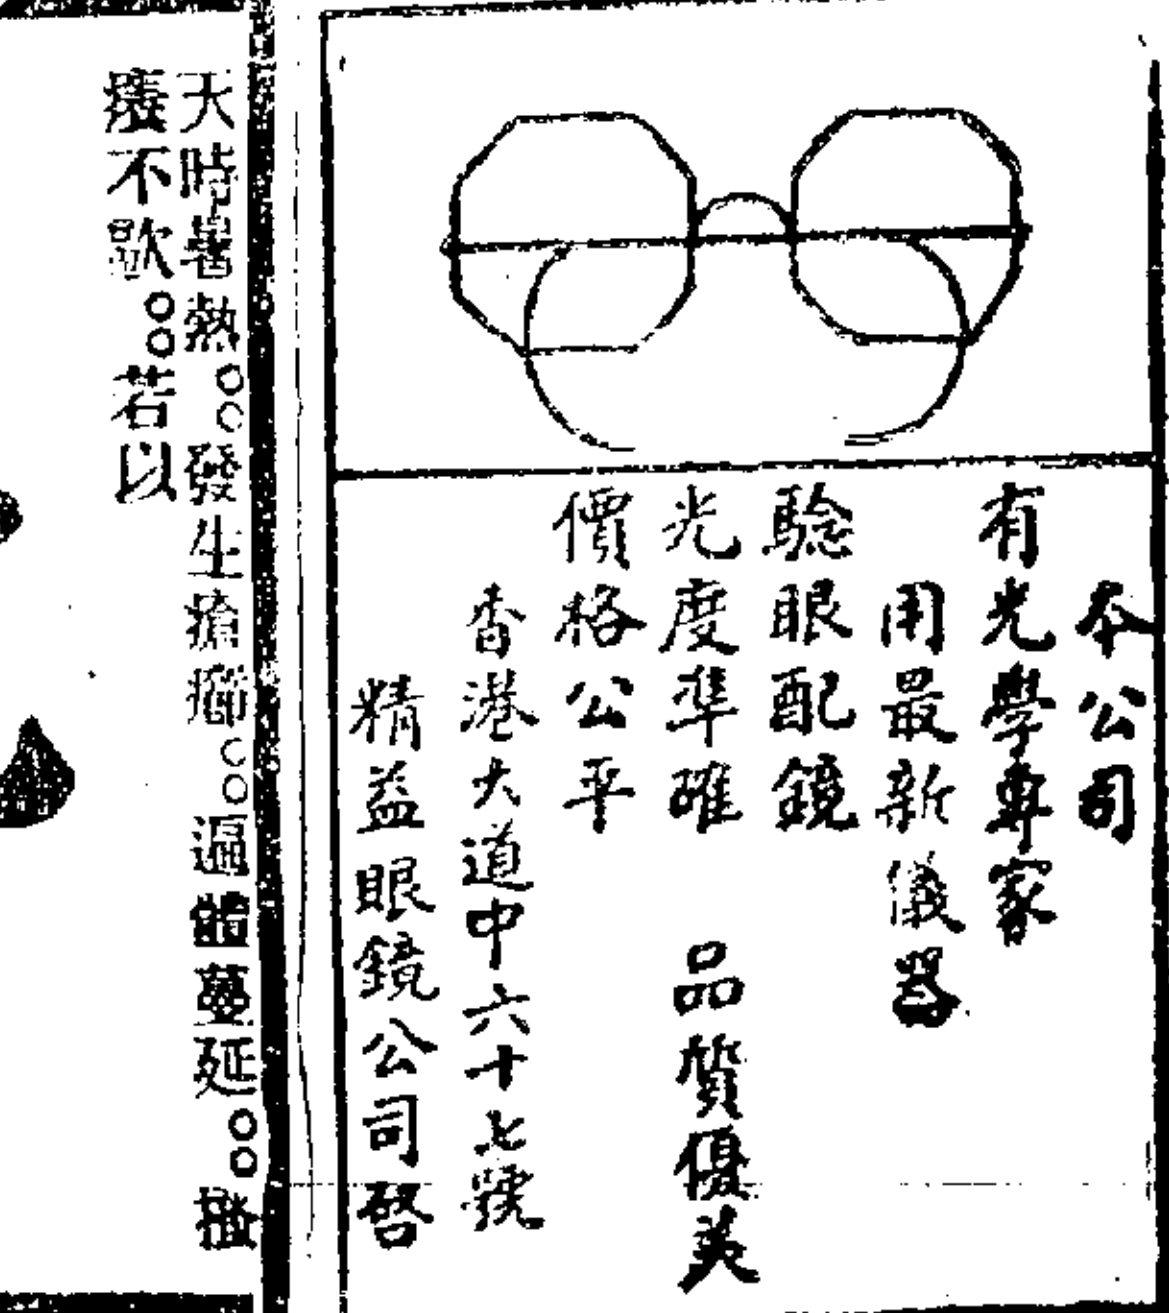 本公司
有光學專家
用最新儀器
驗眼配鏡
光度準確 品質優美
價格公平
香港大道中六十七號
精益眼鏡公司啓
天時暑熱。。發生瘡癤。。遍體蔓延。。搔
癢不歇。。若以